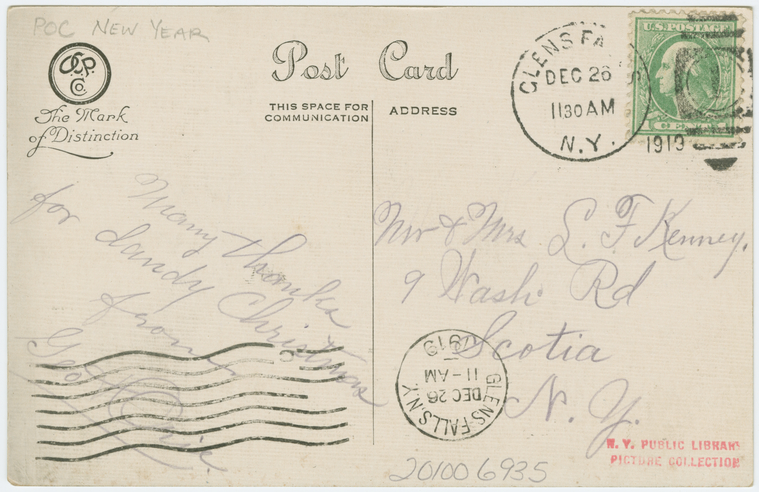 POC NEW YEAR
OCP.
Co.
The Mark
of Distinction
Post Card
THIS SPACE FOR
COMMUNICATION
ADDRESS
GLENS FALLS
DEC 26
1130 AM
N.Y.
1919
U.S. POSTAGE
Many thanks
for dandy Christmas
from
Geo
Mr & Mrs. L. F. Kenney,
9 Wash Rd
Scotia
N. Y.
GLENS FALLS N.Y.
DEC 26
11-AM
1919
N.Y. PUBLIC LIBRARY
PICTURE COLLECTION
201006935